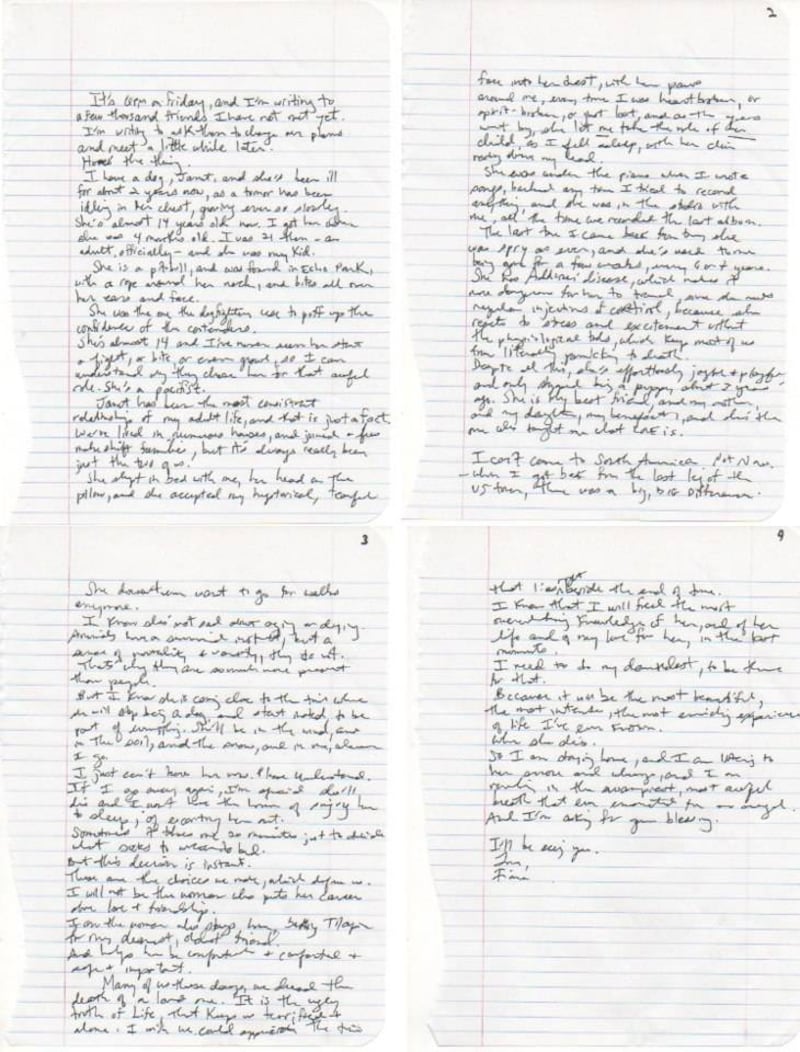 It's 6pm on Friday, and I'm writing to
a few thousand friends I have not met yet.
I'm writing to ask them to change our plans
and meet a little while later.
Here's the thing.
I have a dog, Janet, and she's been ill
for about 2 years now, as a tumor has been
idling in her chest, growing ever so slowly.
She's almost 14 years old now. I got her when
she was 4 months old. I was 21 then - an
adult, officially - and she was my kid.
She is a pitbull, and was found in Echo Park,
with a rope around her neck, and bites all over
her ears and face.
She was the one the dogfighters use to puff up the
confidence of the contenders.
She's almost 14 and I've never seen her start
a fight, or bite, or even growl, so I can
understand why they chose her for that awful
role. She's a pacifist.
Janet has been the most consistent
relationship of my adult life, and that is just a fact.
We've lived in numerous houses, and joined a few
makeshift families, but it's always really been
just the two of us.
She slept in bed with me, her head on the
pillow, and she accepted my hysterical, tearful
2
face into her chest, with her paws
around me, every time I was heartbroken, or
spirit-broken, or just lost, and as the years
went by, she let me take the role of her
child, as I fell asleep, with her chin
resting above my head.
She was under the piano when I wrote
songs, barked any time I tried to record
anything, and she was in the studio with
me, all the time we recorded the last album.
The last time I came back from tour, she
was spry as ever, and she's used to me
being gone for a few weeks, every 6 or 7 years.
She has Addison's disease, which makes it
more dangerous for her to travel since she needs
regular injections of cortisol, because she
reacts to stress and excitement without
the physiological tools which keep most of us
from literally panicking to death.
Despite all this, she's effortlessly joyful & playful
and only stopped being a puppy about 3 years
ago. She is my best friend, and my mother,
and my daughter, my benefactor, and she's the
one who taught me what love is.
I can't come to South America. Not Now.
- When I got back from the last leg of the
US tour, there was a big, big difference.
3
She doesn't even want to go for walks
anymore.
I know she's not sad about aging or dying.
Animals have a survival instinct, but a
sense of mortality & vanity, they do not.
That's why they are so much more present
than people.
But I know she is coming close to the time where
she will stop being a dog, and start instead to be
part of everything. She'll be in the wind, and
in the soil, and the snow, and in me, wherever
I go.
I just can't leave her now. Please understand.
If I go away again, I'm afraid she'll
die and I won't have the honor of singing her
to sleep, of escorting her out.
Sometimes it takes me 20 minutes just to decide
what socks to wear to bed.
But this decision is instant.
These are the choices we make, which define us.
I will not be the woman who puts her career
above love & friendship.
I am the woman who stays home, baking Tilapia
for my dearest, oldest friend.
And helps her be comfortable & comforted &
safe & important.
Many of us these days, we dread the
death of a loved one. It is the ugly
truth of Life, that keeps us terrified &
alone. I wish we could appreciate the time
4
that lies right beside the end of time.
I know that I will feel the most
overwhelming knowledge of her, and of her
life and of my love for her, in the last
moments.
I need to do my damnedest, to be there
for that.
Because it will be the most beautiful,
the most intense, the most enriching experience
of life I've ever known.
When she dies.
So I am staying home, and I am listening to
her snore and wheeze, and I am
reveling in the swampiest, most awful
breath that ever emanated from an angel.
And I'm asking for your blessing.
I'll be seeing you.
Love,
Fiona